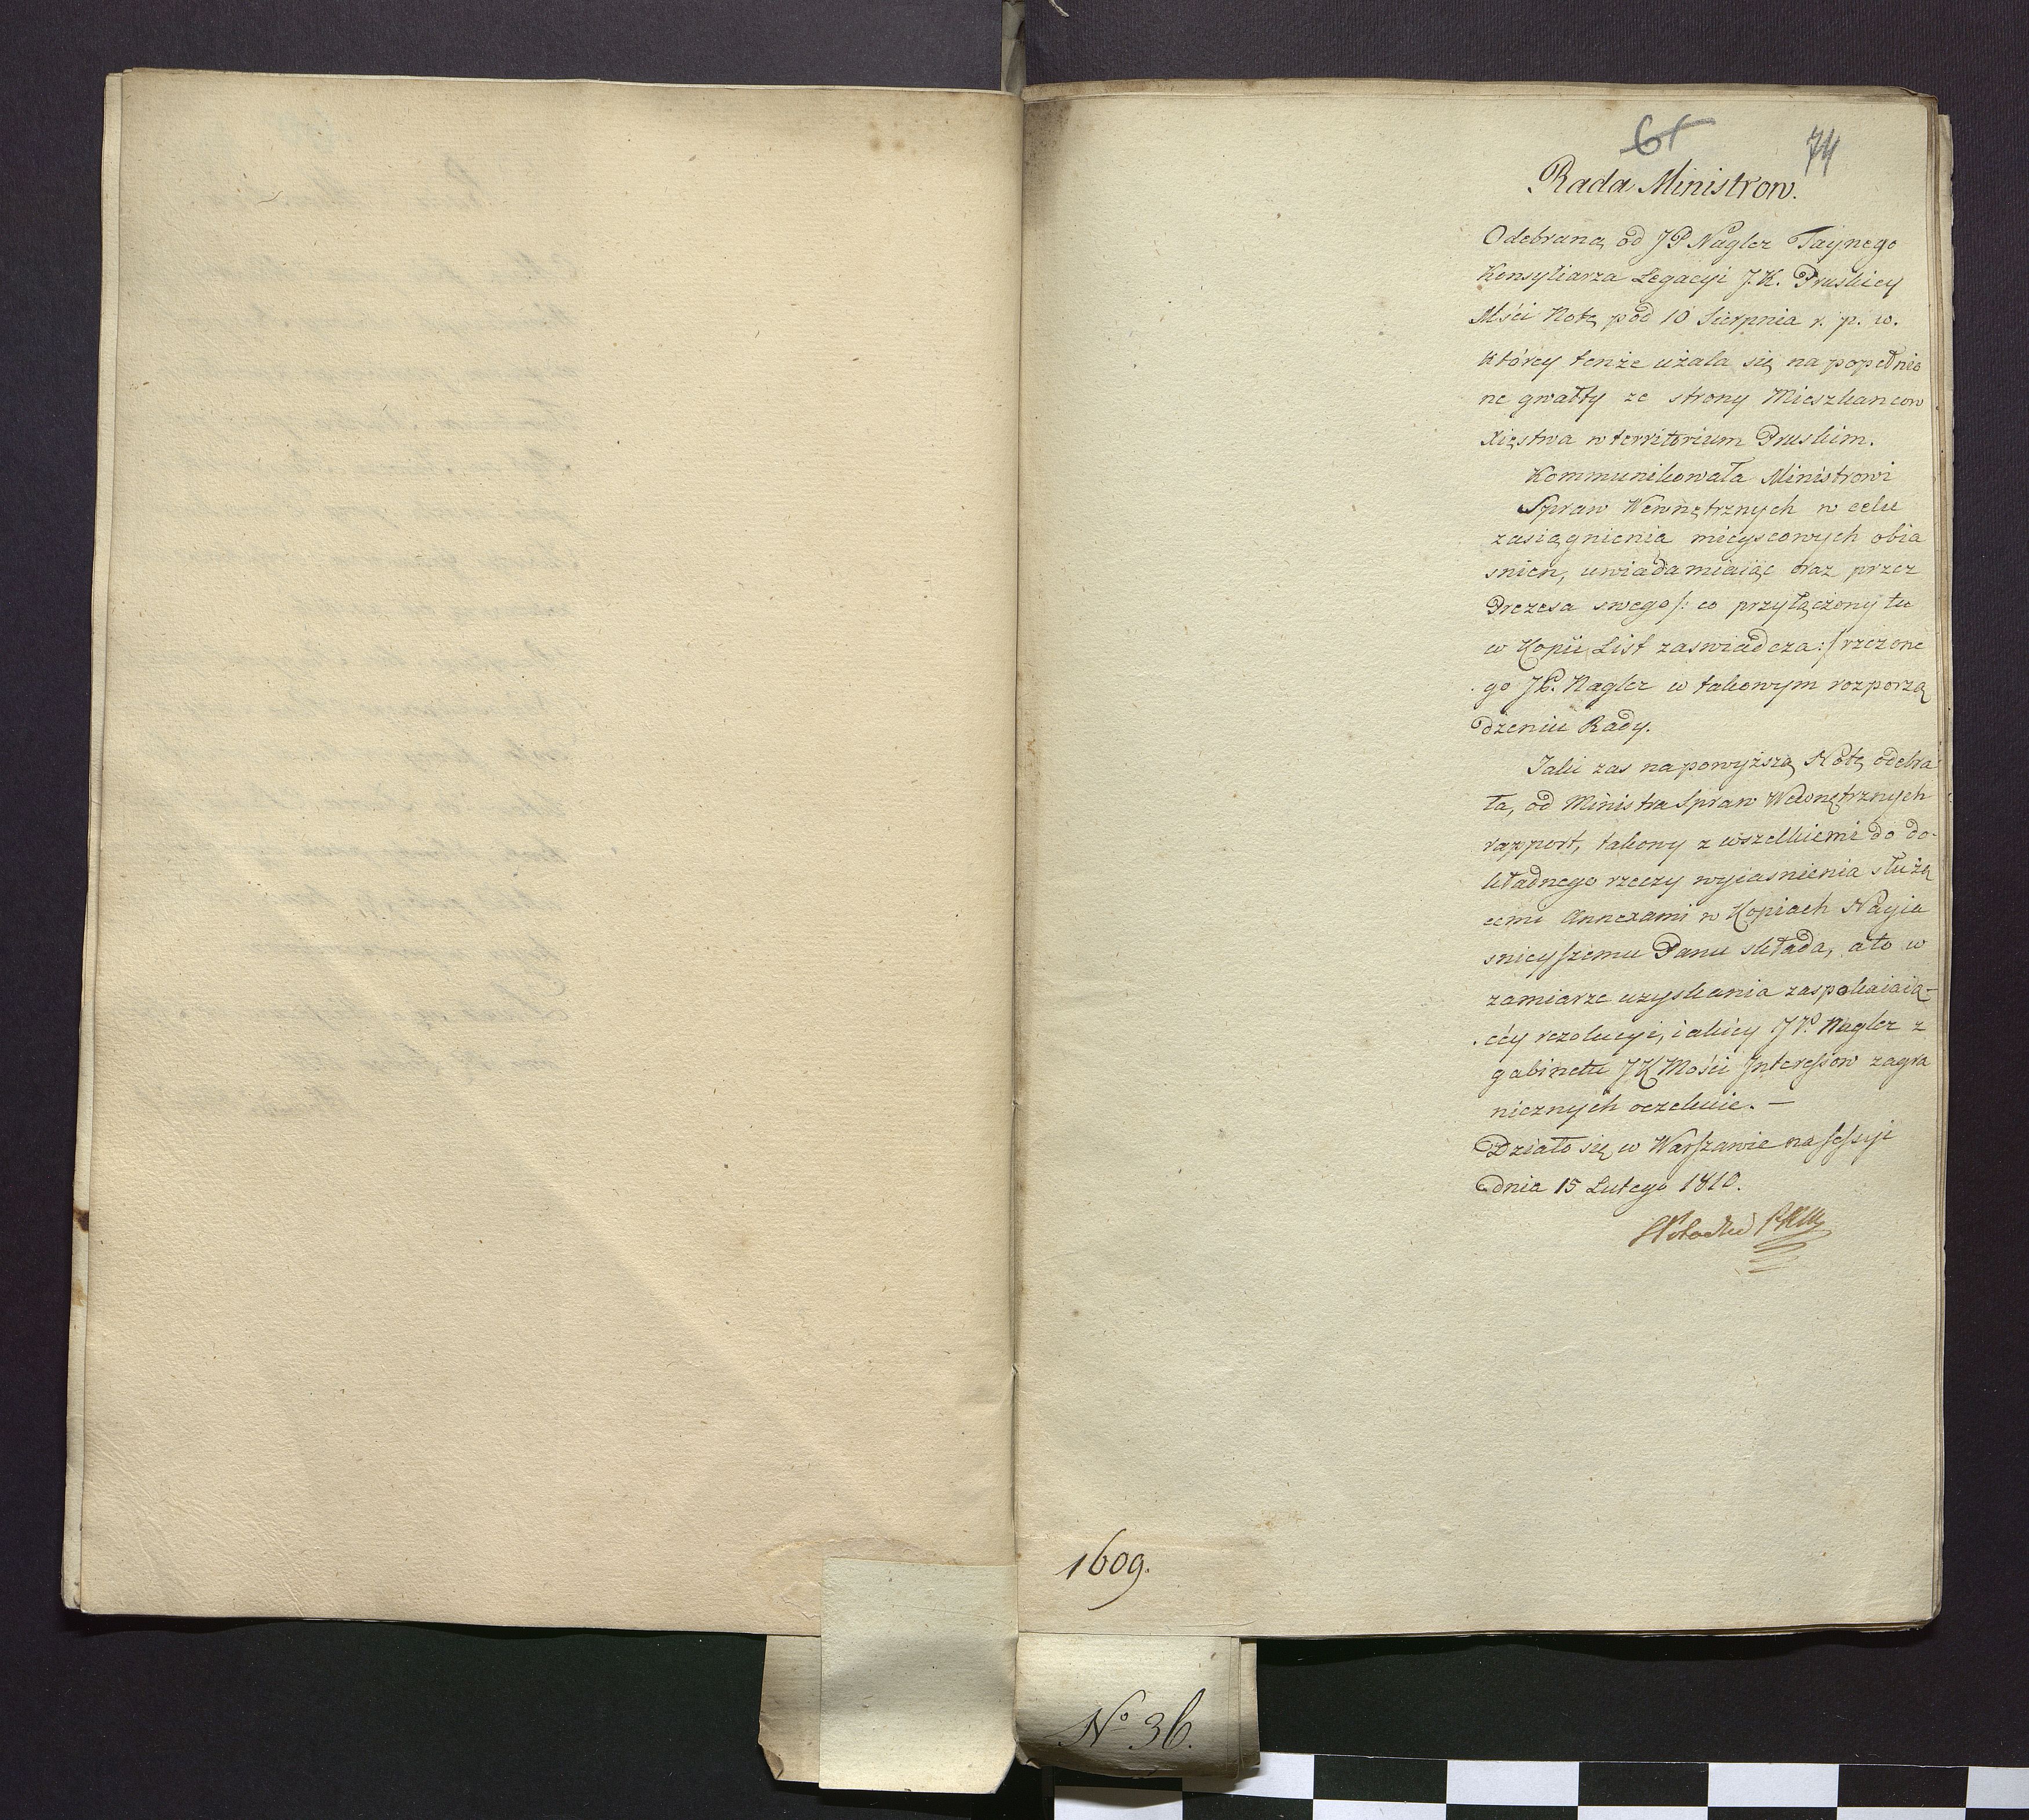 74
Rada Ministrow.
Odebraną od JP Nagler Taynego
Konsyliarza Legacyi J. K. Pruskiey
Mści Notę pod 10 Sierpnia r. p. w.
którey tenże użala się na popełnio
ne gwałty ze strony Mieszkancow
Xięstwa w territorium Pruskim.
Kommunikowała Ministrowi
Spraw Wewnętrznych w celu
zasiągnienia mieyscowych obia
snien, uwiadamiaiąc oraz przez
Prezesa swego /: co przyłączony tu
w Kopii List zaswiadcza :/ rzeczone
go JP. Nagler w takowym rozporzą
dzeniu Rady.
Jaki zas na powyższą Notę odebra
ła, od Ministra Spraw Wewnętrznych
rapport, takowy z wszelkiemi do do-
kładnego rzeczy wyiasnienia służą
cemi Annexami w Kopiach Nayia
snieyszemu Panu składa, a to w
zamiarze uzyskania zaspokaiaią-
céy rezolucyi, iakiey JP. Nagler z
gabinetu JK Mości Interessow zagra
nicznych oczekuie. —
Działo się w Warszawie na sessyi
dnia 15 Lutego 1810.
1609.
No 36.